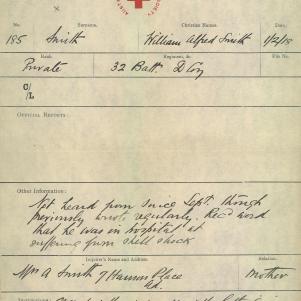 No. Surname. Christian Names. Date.
185 Smith William Alfred Smith 1/2/18
Rank Regiment, &c. File No.
Private 32 Batt. D Coy
C/
/L
OFFICIAL REPORTS:
Other Information:
Not heard from since Sept. though
previously wrote regularly. Rec'd word
that he was in hospital at
suffering from shell shock
Inquirer's Name and Address. Relation.
Mrs A Smith 7 Place Mother
Ad.